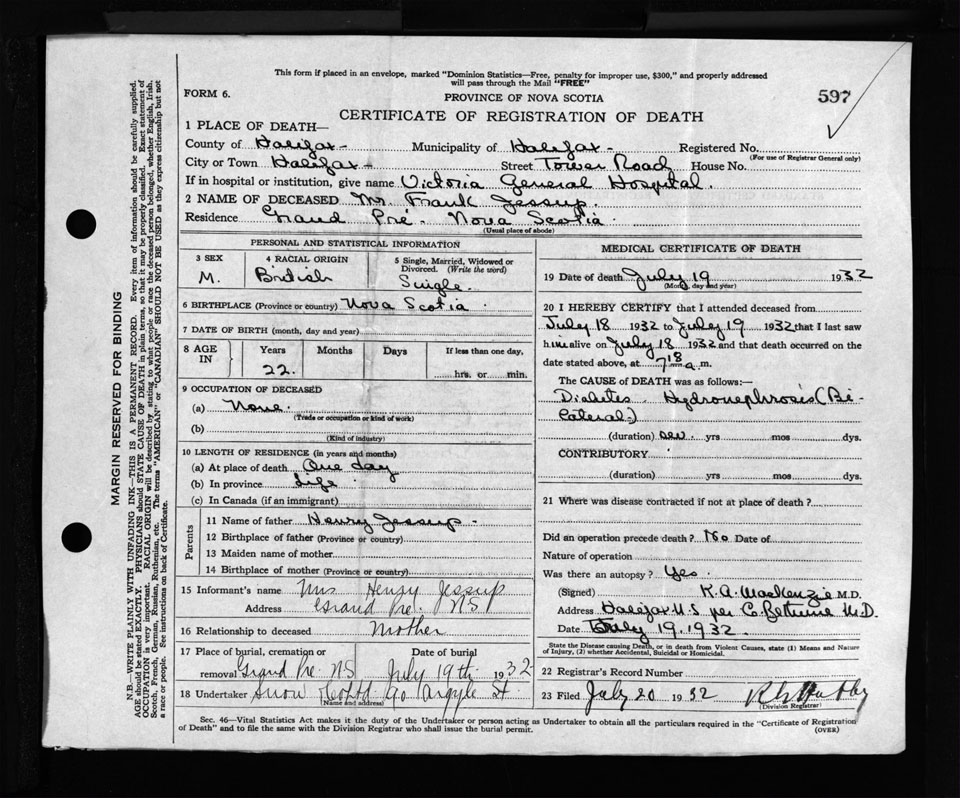 This form if placed in an envelope, marked "Dominion Statistics—Free, penalty for improper use, $300," and properly addressed
will pass through the Mail "FREE"
FORM 6.
PROVINCE OF NOVA SCOTIA
597
CERTIFICATE OF REGISTRATION OF DEATH
1 PLACE OF DEATH—
County of Halifax - Municipality of Halifax - Registered No.
(For use of Registrar General only)
City or Town Halifax - Street Tower Road House No.
If in hospital or institution, give name Victoria General Hospital.
2 NAME OF DECEASED Mr. Frank Jessup.
Residence Grand Pré. Nova Scotia.
(Usual place of abode)
PERSONAL AND STATISTICAL INFORMATION
3 SEX
M.
4 RACIAL ORIGIN
British
5 Single, Married, Widowed or
Divorced. (Write the word)
Single.
6 BIRTHPLACE (Province or country) Nova Scotia.
7 DATE OF BIRTH (month, day and year)
8 AGE IN
Years Months Days If less than one day,
22. hrs. or min.
9 OCCUPATION OF DECEASED
(a) None.
(Trade or occupation or kind of work)
(b)
(Kind of industry)
10 LENGTH OF RESIDENCE (in years and months)
(a) At place of death One day
(b) In province Life
(c) In Canada (if an immigrant)
Parents
11 Name of father Henry Jessup -
12 Birthplace of father (Province or country)
13 Maiden name of mother
14 Birthplace of mother (Province or country)
15 Informant's name Mrs Henry Jessup
Address Grand Pre. NS
16 Relationship to deceased Mother
17 Place of burial, cremation or Date of burial
removal Grand Pre NS July 19th 1932
18 Undertaker Snow & Co Ltd 90 Argyle St
(Name and address)
MEDICAL CERTIFICATE OF DEATH
19 Date of death July 19 1932
(Month, day and year)
20 I HEREBY CERTIFY that I attended deceased from
July 18 1932 to July 19 1932 that I last saw
him alive on July 18 1932 and that death occurred on the
date stated above, at 7 18 a. m.
The CAUSE of DEATH was as follows:—
Diabetes. Hydronephrosis (Bi-
lateral.)
(duration) sev. yrs mos dys.
CONTRIBUTORY
(duration) yrs mos dys.
21 Where was disease contracted if not at place of death?
Did an operation precede death? No Date of
Nature of operation
Was there an autopsy? Yes.
(Signed) K.A. MacKenzie M.D.
Address Halifax N.S per C. Bethune M.D.
Date July 19. 1932.
State the Disease causing Death, or in death from Violent Causes, state (1) Means and Nature
of Injury, (2) whether Accidental, Suicidal or Homicidal.
22 Registrar's Record Number
23 Filed July 20 1932
(Division Registrar)
Sec. 46—Vital Statistics Act makes it the duty of the Undertaker or person acting as Undertaker to obtain all the particulars required in the "Certificate of Registration
of Death" and to file the same with the Division Registrar who shall issue the burial permit.
(OVER)
MARGIN RESERVED FOR BINDING
N.B.—WRITE PLAINLY WITH UNFADING INK—THIS IS A PERMANENT RECORD. Every item of information should be carefully supplied.
AGE should be stated EXACTLY. PHYSICIANS should STATE CAUSE OF DEATH in plain terms, so that it may be properly classified. Exact statement of
OCCUPATION is very important. RACIAL ORIGIN will be described by stating to what people or race the deceased person belonged, whether English, Irish,
Scotch, French, German, Russian, Ruthenian, etc. The terms "AMERICAN" or "CANADIAN" SHOULD NOT BE USED as they express citizenship but not
a race or people. See instructions on back of Certificate.